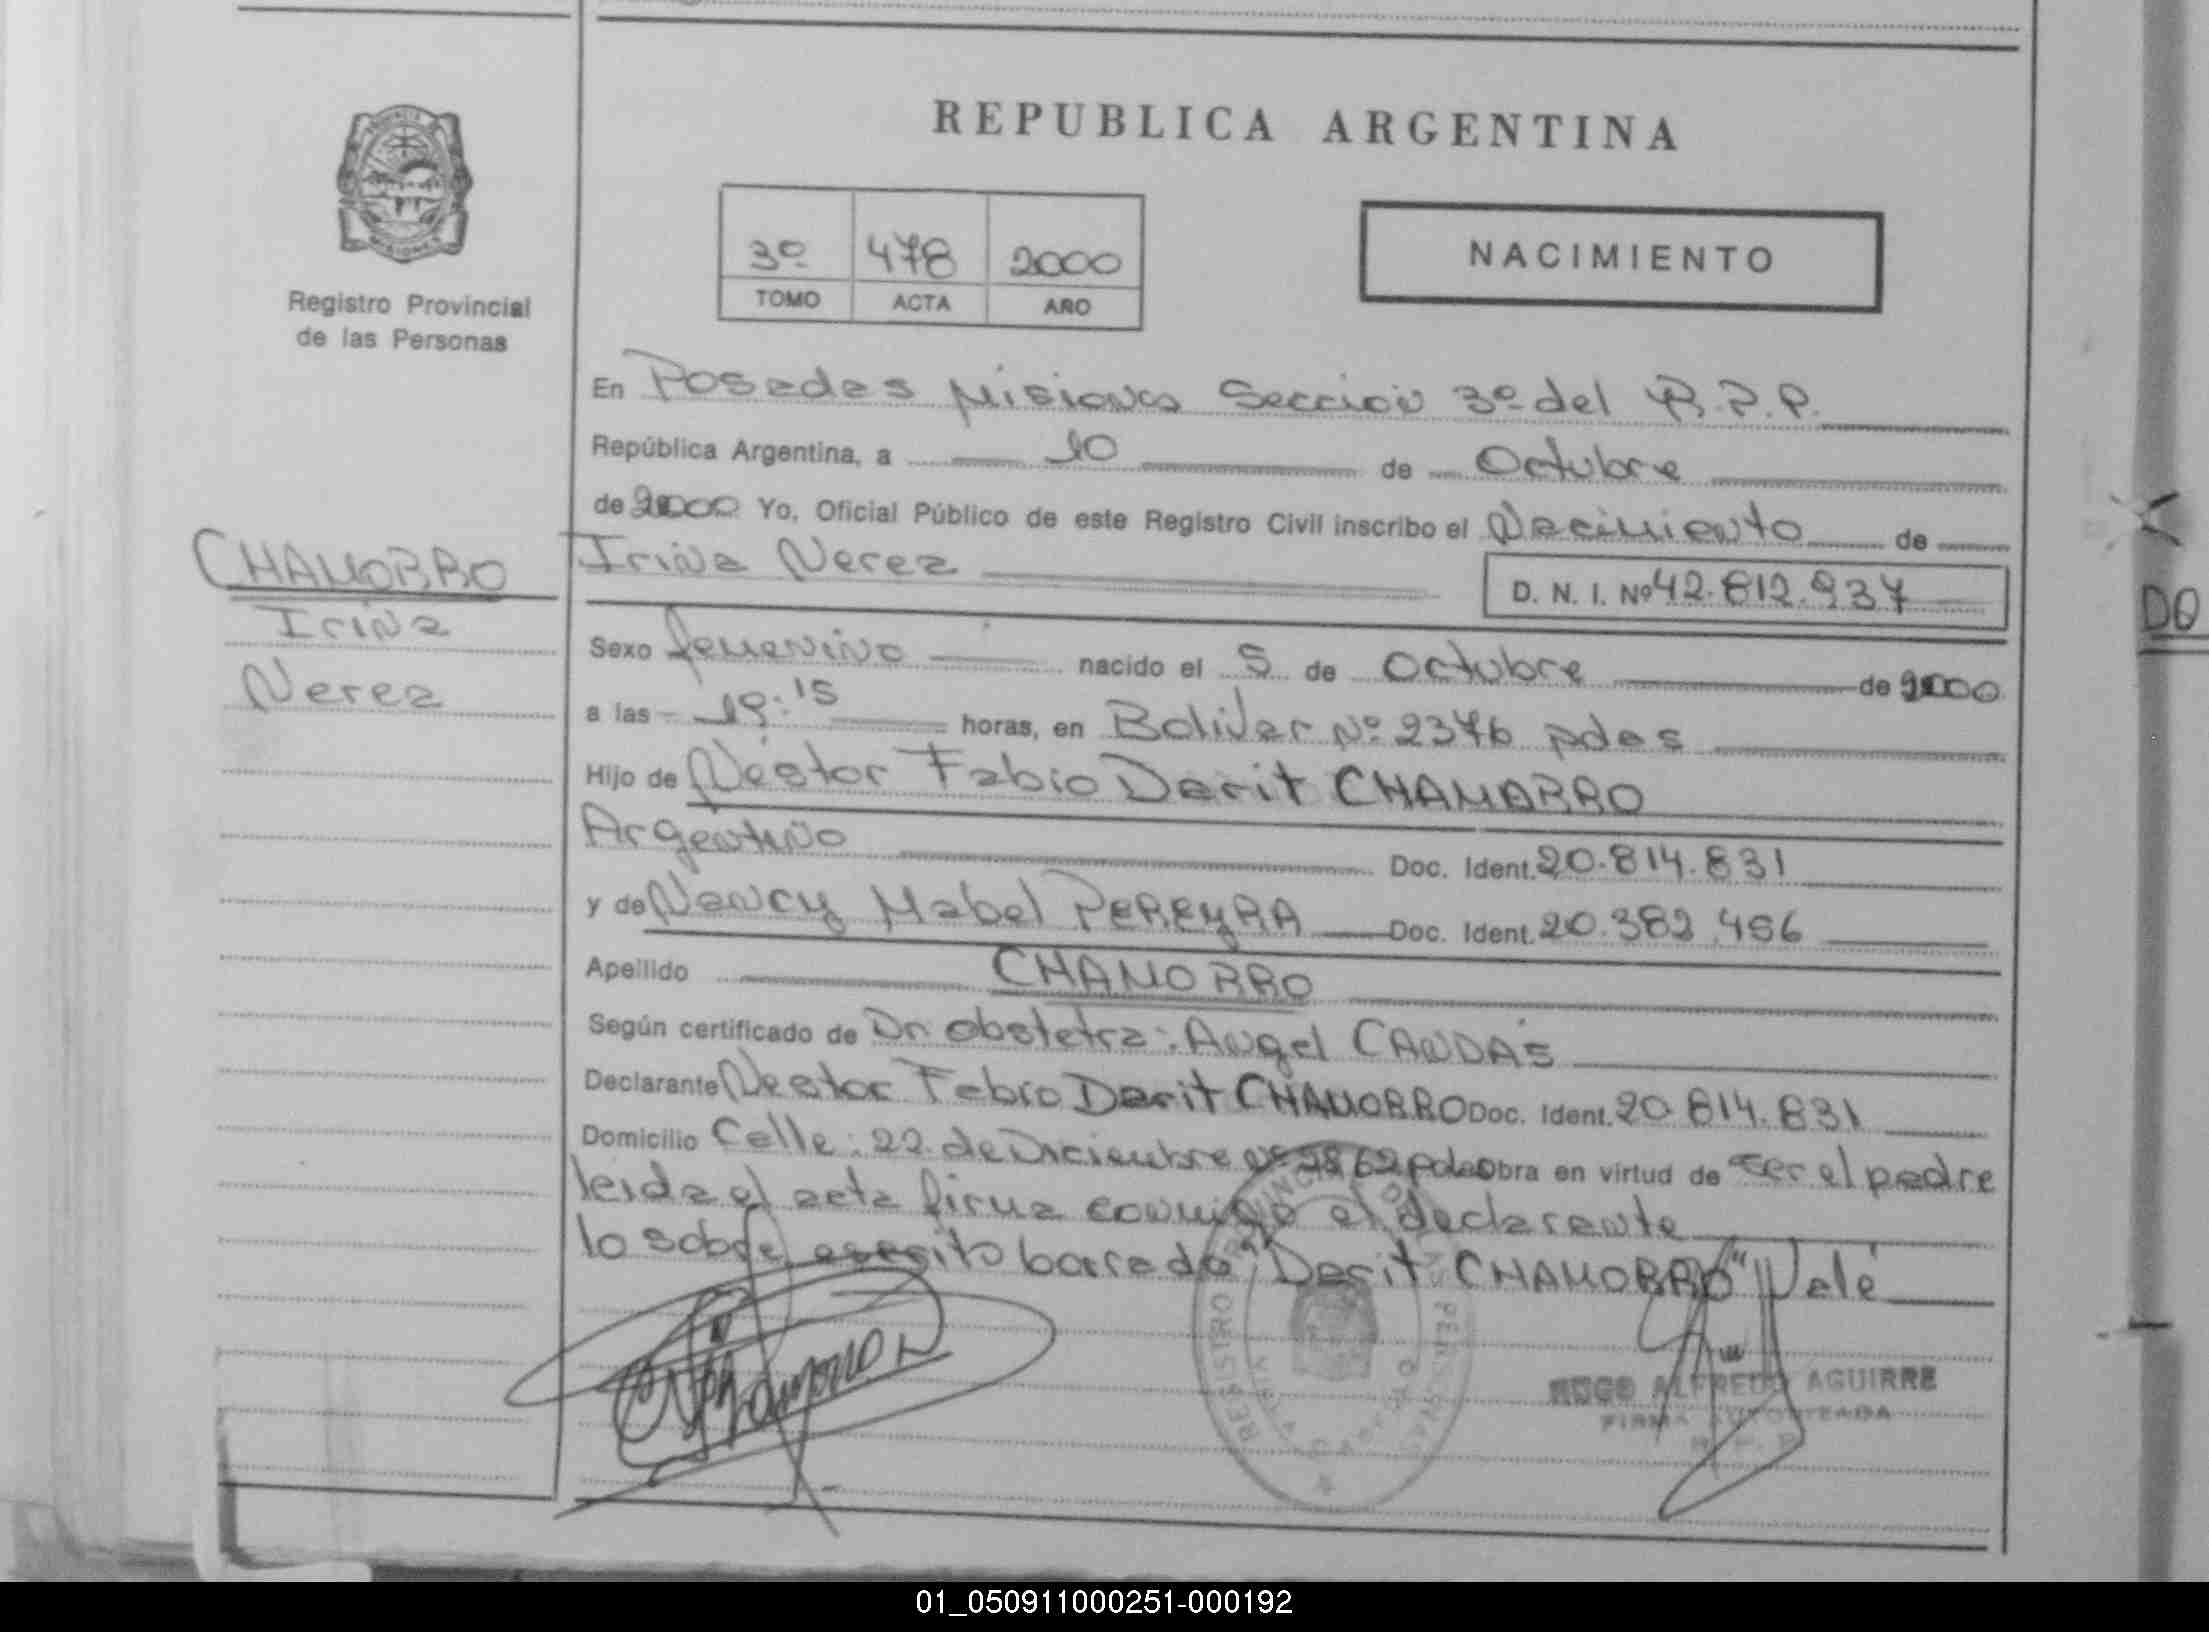 REPUBLICA ARGENTINA
3º 478 2000
TOMO ACTA AÑO
NACIMIENTO
Registro Provincial
de las Personas
En Posadas Misiones Sección 3º del R.P.P.
República Argentina, a 10 de Octubre
de 2000 Yo, Oficial Público de este Registro Civil inscribo el Nacimiento de
Iriña Nerea
D. N. I. Nº 42.812.937
CHAMORRO
Iriña
Nerea
Sexo femenino nacido el 5 de Octubre de 2000
a las 19:15 horas, en Bolivar Nº 2376 pdas
Hijo de Néstor Fabio Darit CHAMORRO
Argentino Doc. Ident. 20.814.831
y de Nancy Mabel PEREYRA Doc. Ident. 20.382.456
Apellido CHAMORRO
Según certificado de Dr. obstetra: Angel CANDAS
Declarante Nestor Fabio Darit CHAMORRO Doc. Ident. 20.814.831
Domicilio Calle: 22 de Diciembre Nº 2862 pdas Obra en virtud de ser el padre
leida el acta firma conmigo el declarante
lo sobre escrito borrado "Darit CHAMORRO" Vale
REGISTRO PROVINCIAL DE LAS PERSONAS
HUGO ALFREDO AGUIRRE
FIRMA AUTORIZADA
R. P. P.
DO
01_050911000251-000192